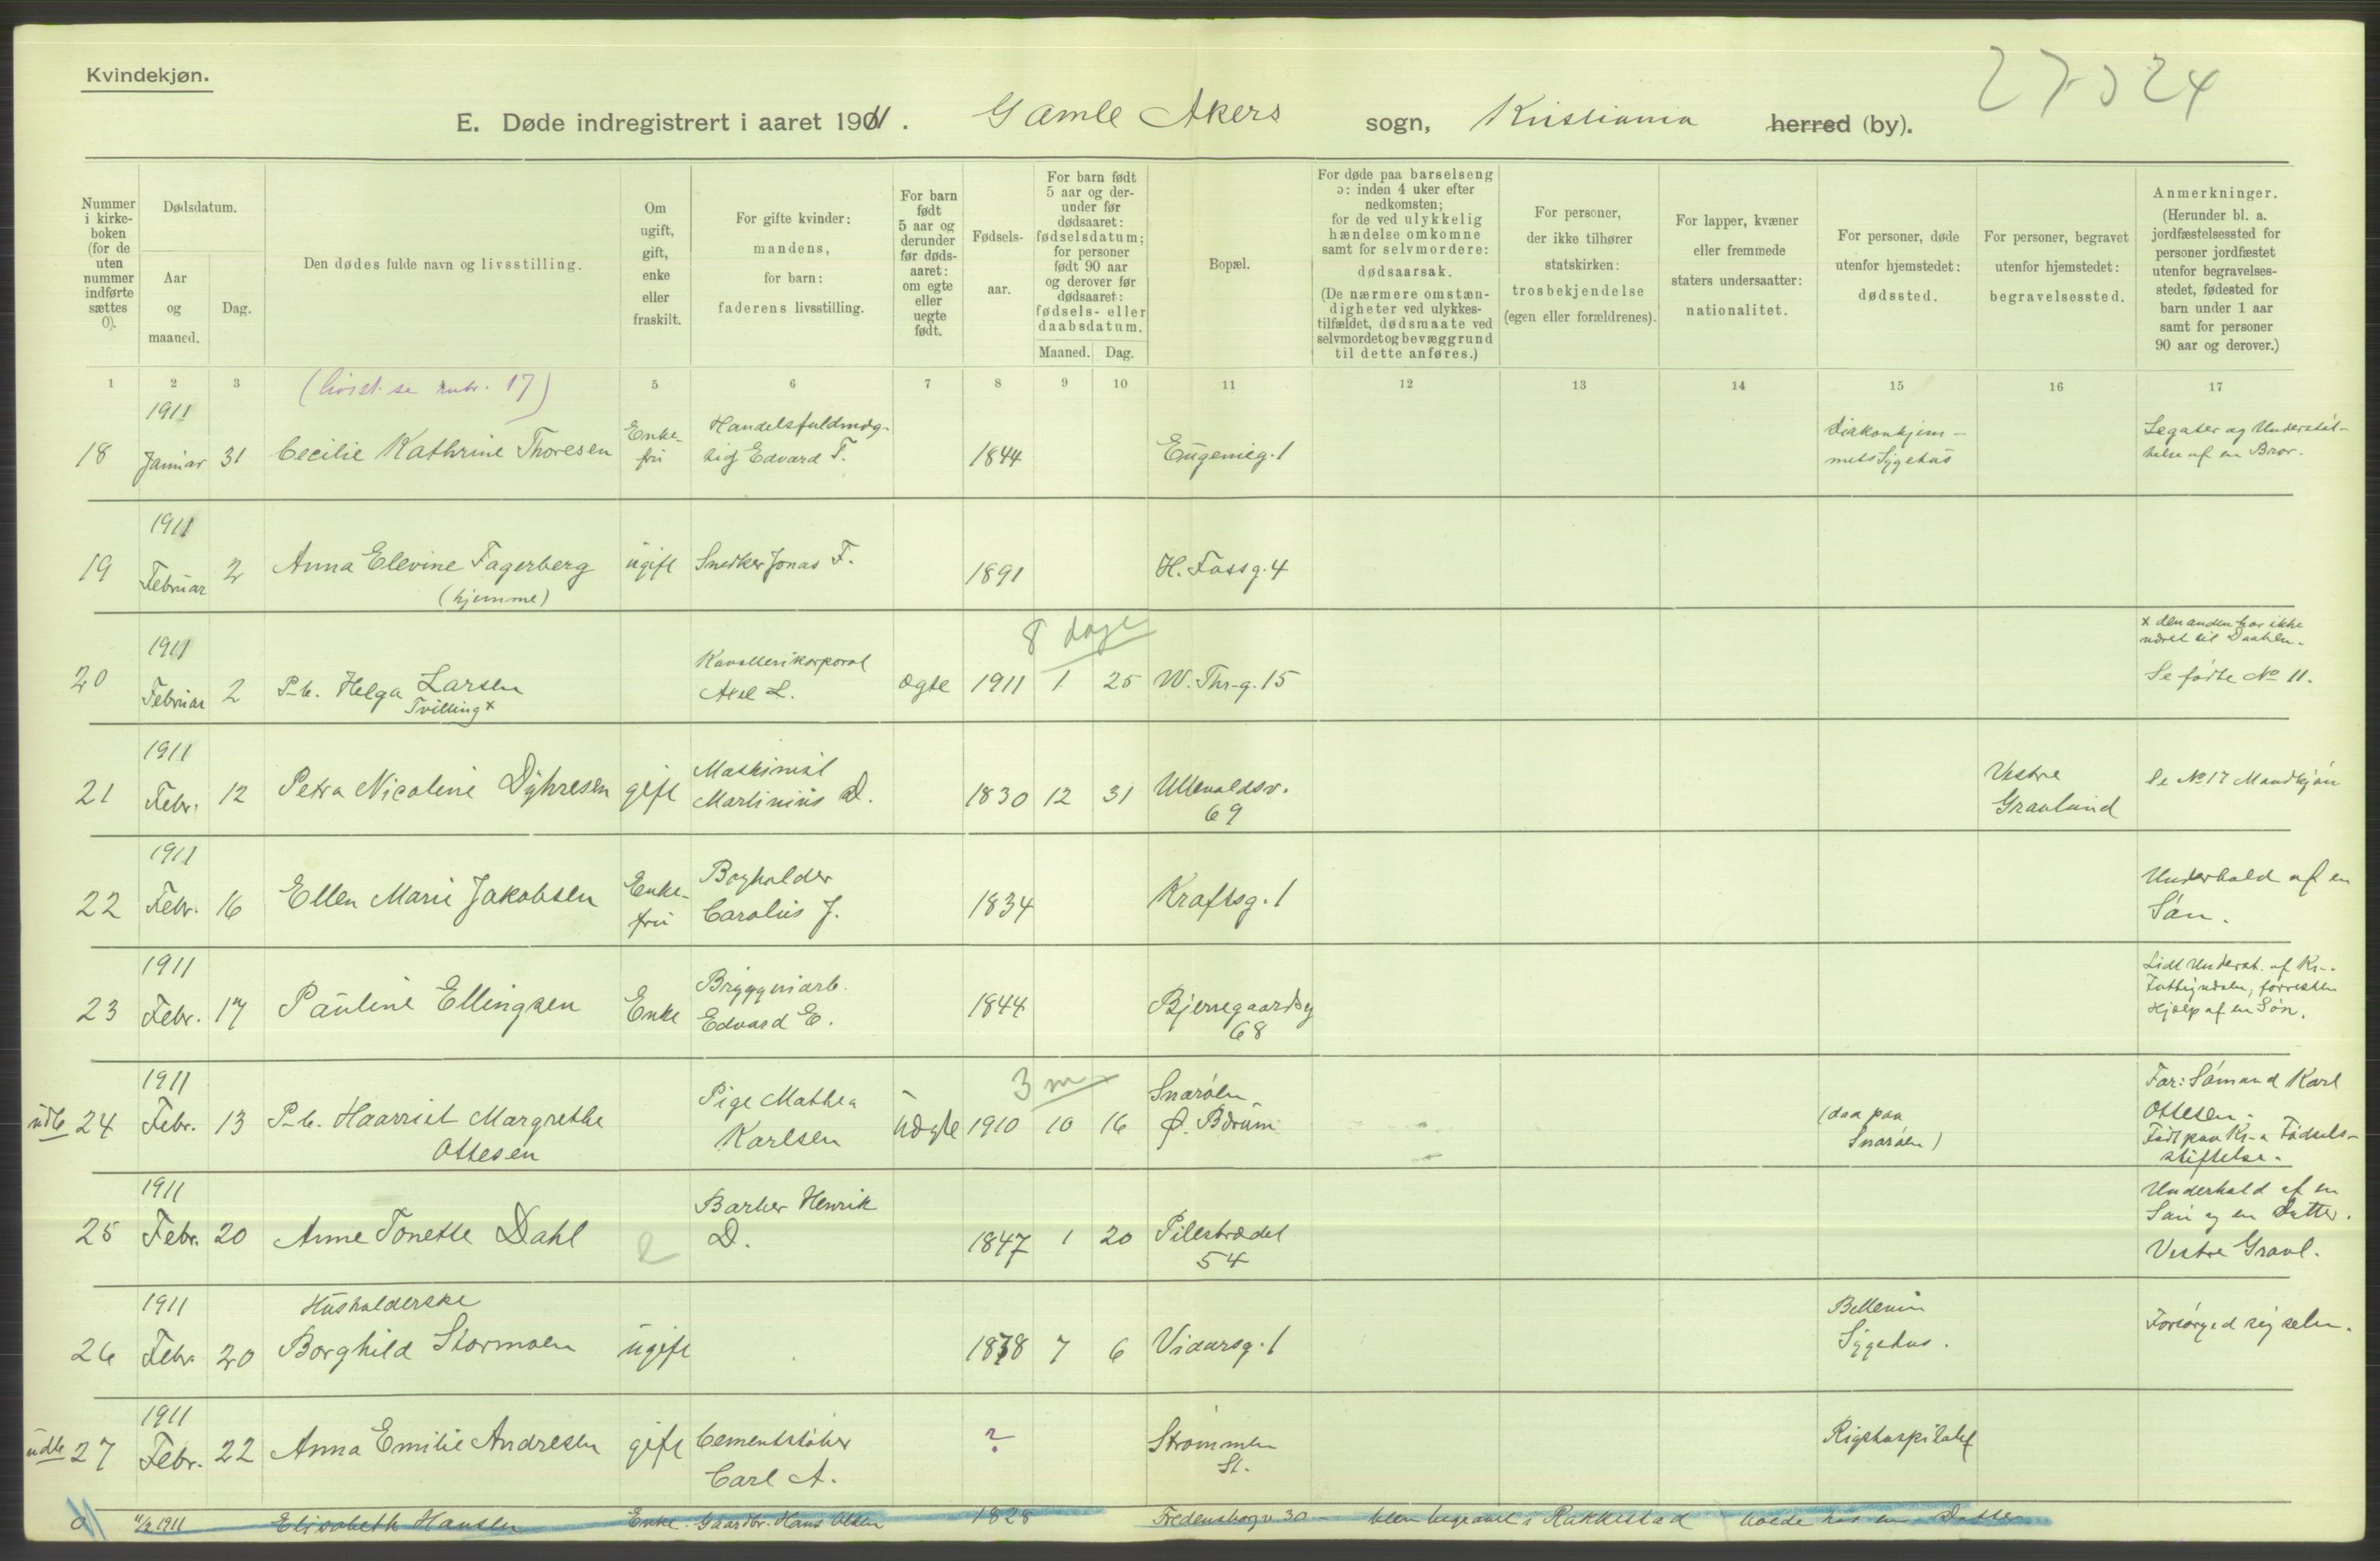 Kvindekjøn.
27324
E. Døde indregistrert i aaret 1911. Gamle Akers sogn, Kristiania herred (by).
Nummer i kirke-boken (for de uten nummer indførte sættes 0).
Dødsdatum.
Aar og maaned.
Dag.
Den dødes fulde navn og livsstilling.
Om ugift, gift, enke eller fraskilt.
For gifte kvinder: mandens, for barn: faderens livsstilling.
For barn født 5 aar og derunder før døds-aaret: om egte eller uegte født.
Fødsels-aar.
For barn født 5 aar og der-under før dødsaaret: fødselsdatum; for personer født 90 aar og derover før dødsaaret: fødsels- eller daabsdatum.
Maaned. Dag.
Bopæl.
For døde paa barselseng ɔ: inden 4 uker efter nedkomsten; for de ved ulykkelig hændelse omkomne samt for selvmordere: dødsaarsak. (De nærmere omstæn-digheter ved ulykkes-tilfældet, dødsmaate ved selvmordet og bevæggrund til dette anføres.)
For personer, der ikke tilhører statskirken: trosbekjendelse (egen eller forældrenes).
For lapper, kvæner eller fremmede staters undersaatter: nationalitet.
For personer, døde utenfor hjemstedet: dødssted.
For personer, begravet utenfor hjemstedet: begravelsessted.
Anmerkninger. (Herunder bl. a. jordfæstelsessted for personer jordfæstet utenfor begravelses-stedet, fødested for barn under 1 aar samt for personer 90 aar og derover.)
1 2 3 5 6 7 8 9 10 11 12 13 14 15 16 17
se rubr. 17)
18 1911 Januar 31 Cecilie Kathrine Thoresen Enke-frü Handelsfuldmæg-tig Edvard T. 1844 Eugenieg. 1 Diakonhjem-mets Sygehus Legater og Understøt-telse af en Bror.
19 1911 Februar 2 Anna Elevine Fagerberg (hjemme) ugift Snedker Jonas F. 1891 H. Fossg. 4
8 dage
20 1911 Februar 2 P-b. Helga Larsen Tvilling x Kavallerikorporal Axel L. ægte 1911 1 25 W. Thr-g. 15 x den anden har ikke været til Daaben. Se fødte No 11.
21 1911 Febr. 12 Petra Nicoline Dyhresen gift Maskinist Martinius D. 1830 12 31 Ullevoldsv. 69 Vestre Gravlund Se No 17 Mandkjøn
22 1911 Febr. 16 Ellen Marie Jakobsen Enke-frü Bogholder Carolus J. 1834 Kraftsg. 1 Underhold af en Søn.
23 1911 Febr. 17 Pauline Ellingsen Enke Bryggeriarb. Edvard E. 1844 Bjerregaardsg 68 Lidt Underst. af Kr-. Fattigvæsen, forresten Hjælp af en Søn.
3 m
udb 24 1911 Febr. 13 P-b. Haarriet Margrethe Ottesen Pige Mathea Karlsen Uægte 1910 10 16 Snarøen Ø. Bærum (død paa Snarøen) Far: Sømand Karl Ottesen. Født paa Kr-a Fødsels-stiftelse.
25 1911 Febr. 20 Anne Tonette Dahl e Barber Henrik D. 1847 1 20 Pilestrædet 54 Underhold af en Søn og en Datter. Vestre Gravl.
26 1911 Febr. 20 Husholderske Borghild Stormoen ugift 1878 7 6 Vidarsg. 1 Sygehus. Forsørged sig selv.
udb 27 1911 Febr. 22 Anna Emilie Andresen gift Cementstøber Carl A. ? Strømmen St. Rigshospitalet
0 11/2 1911 Elisabeth Hansen Enke Gaardbr. Hans Olsen 1828 Fredensborgv 30 - blev begravet i Rakkestad boede hos en Datter